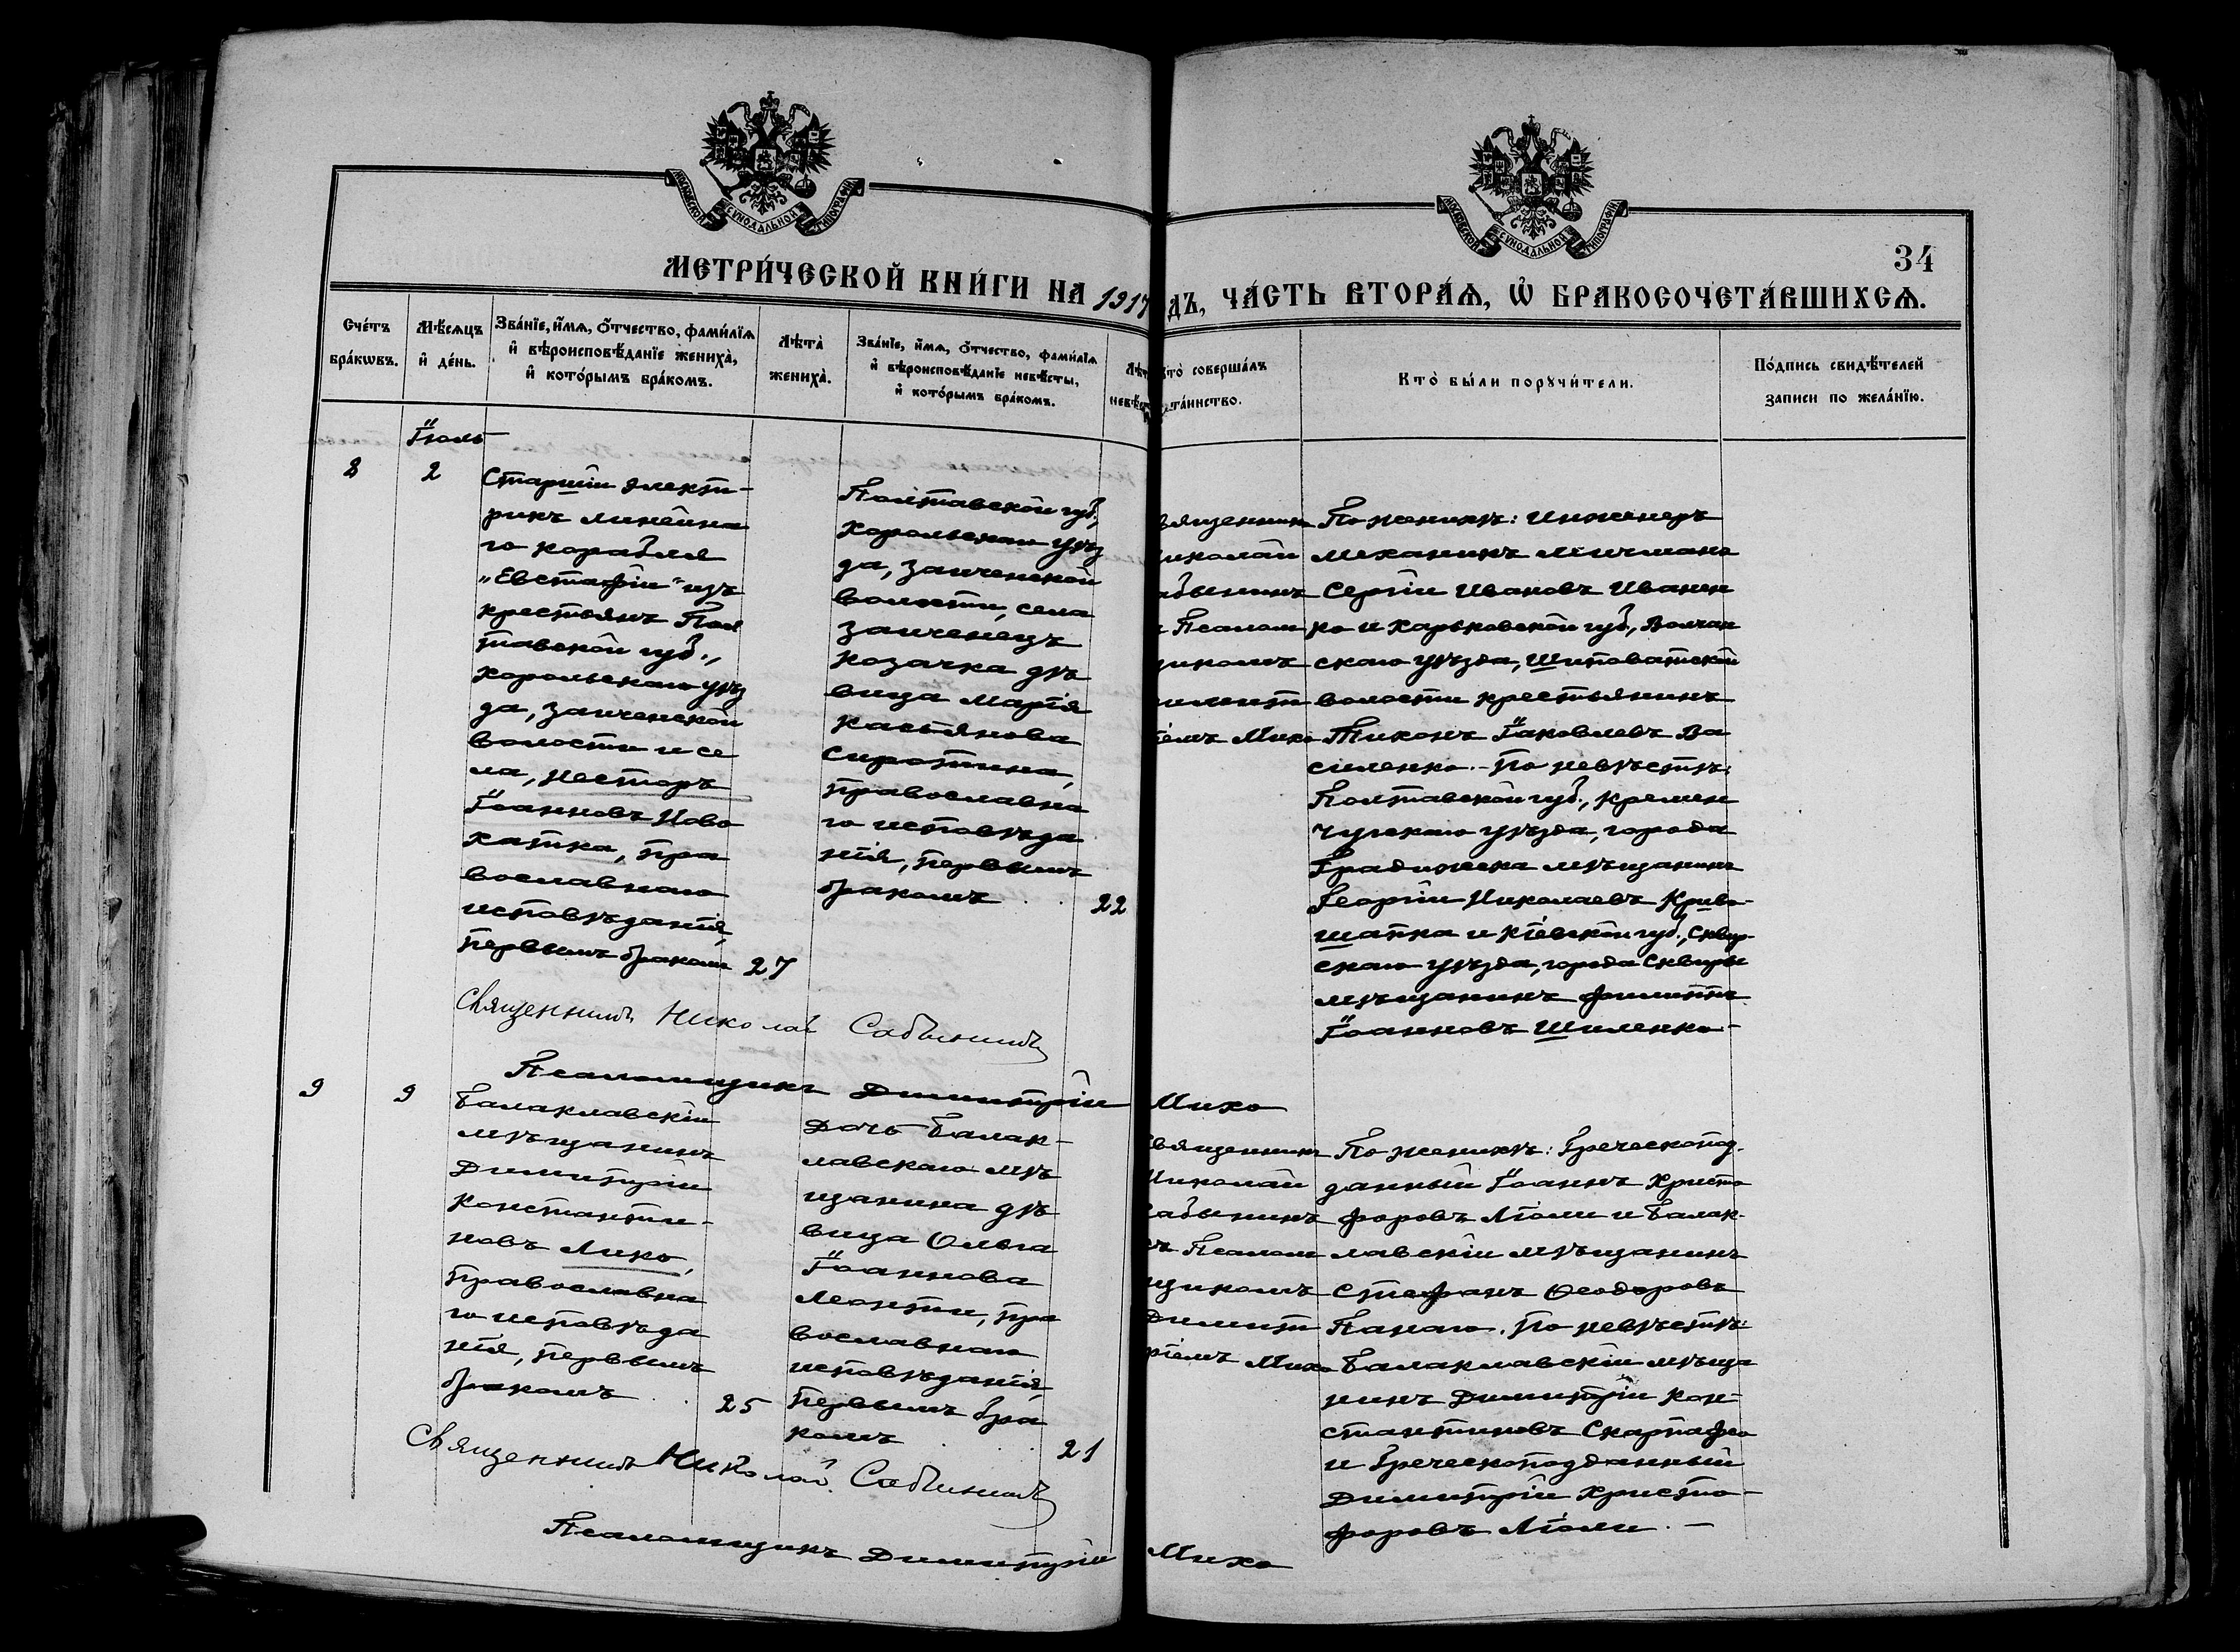 МОСКОВСКОЙ СѴНОДАЛЬНОЙ ТИПОГРАФІИ
МОСКОВСКОЙ СѴНОДАЛЬНОЙ ТИПОГРАФІИ
34
МЕТРИ́ЧЕСКОЙ КНИ́ГИ НА 1917
ДЪ, ЧА́СТЬ ВТОРА́Ѧ, Ѽ БРАКОСОЧЕТА́ВШИХСѦ.
Сче́тъ
бра́кѡвъ.
Мѣ́сѧцъ
и҆ де́нь.
Зва́нїе, и҆́мѧ, ѻ҆́тчество, фами́лїѧ
и҆ вѣроисповѣ́данїе жениха̀,
и҆ кото́рымъ бра́комъ.
Лѣта̀
жениха̀.
Зва́нїе, и҆́мѧ, ѻ҆́тчество, фами́лїѧ
и҆ вѣроисповѣ́данїе невѣ́сты,
и҆ кото́рымъ бра́комъ.
Лѣт
невѣ́с
кто̀ соверша́лъ
та́инство.
Кто̀ бы́ли порꙋчи́тели.
По́дпись свидѣ́телей
записи по жела́нїю.
Іюль
8
2
Старшій элект-
рикъ линейна
го корабля
„Евстафій" изъ
крестьянъ Пол
тавской губ.,
Хорольскаго уѣз
да, Заиченской
волости и се
ла, Несторъ
Іоанновъ Ново
хатка, пра
вославнаго
исповѣданія,
первымъ бракомъ 27
Полтавской губ.,
Хорольскаго уѣз
да, Заиченской
волости, села
Заиченецъ
козачка дѣ
вица Марія
Касьянова
Сиротина,
православна
го исповѣда
нія, первымъ
бракомъ . . 22
вященникъ
иколай
абынинъ
ъ Псалом
щикомъ
имитр
іемъ Михо
По женихѣ: Инженеръ
механикъ мичманъ
Сергій Ивановъ Иванен
ко и Харьковской губ., Волчан
скаго уѣзда, Шиповатской
волости крестьянинъ
Тихонъ Іаковлевъ Ва
силенко. - По невѣстѣ:
Полтавской губ., Кремен
чугскаго уѣзда, города
Градижска мѣщанинъ
Георгій Николаевъ Криво-
шапка и Кіевской губ., Сквир-
скаго уѣзда, города Сквиры
мѣщанинъ Филиппъ
Іоанновъ Шиленко -
Священникъ Николай Сабынинъ
Псаломщикъ Димитрій Михо
9
9
Балаклавскій
мѣщанинъ
Димитрій
Константи-
новъ Лико,
православна
го исповѣда
нія, первымъ
бракомъ . . 25
Дочь Балак-
лавскаго мѣ
щанина дѣ
вица Ольга
Іоаннова
Леонти, пра
вославнаго
исповѣданія,
первымъ бра
комъ . . . 21
вященникъ
Николай
Сабынинъ
съ Псалом
щикомъ
Димит
ріемъ Михо
По женихѣ: Греческопод-
данный Іоаннъ Христо
форовъ Ліоли и Балак-
лавскій мѣщанинъ
Стефанъ Ѳеодоровъ
Панаго. По невѣстѣ:
Балаклавскій мѣща
нинъ Димитрій Кон-
стантиновъ Скарпафео
и Греческоподданный
Димитрій Христо-
форовъ Ліоли. -
Священникъ Николай Сабынинъ
Псаломщикъ Димитрій Михо